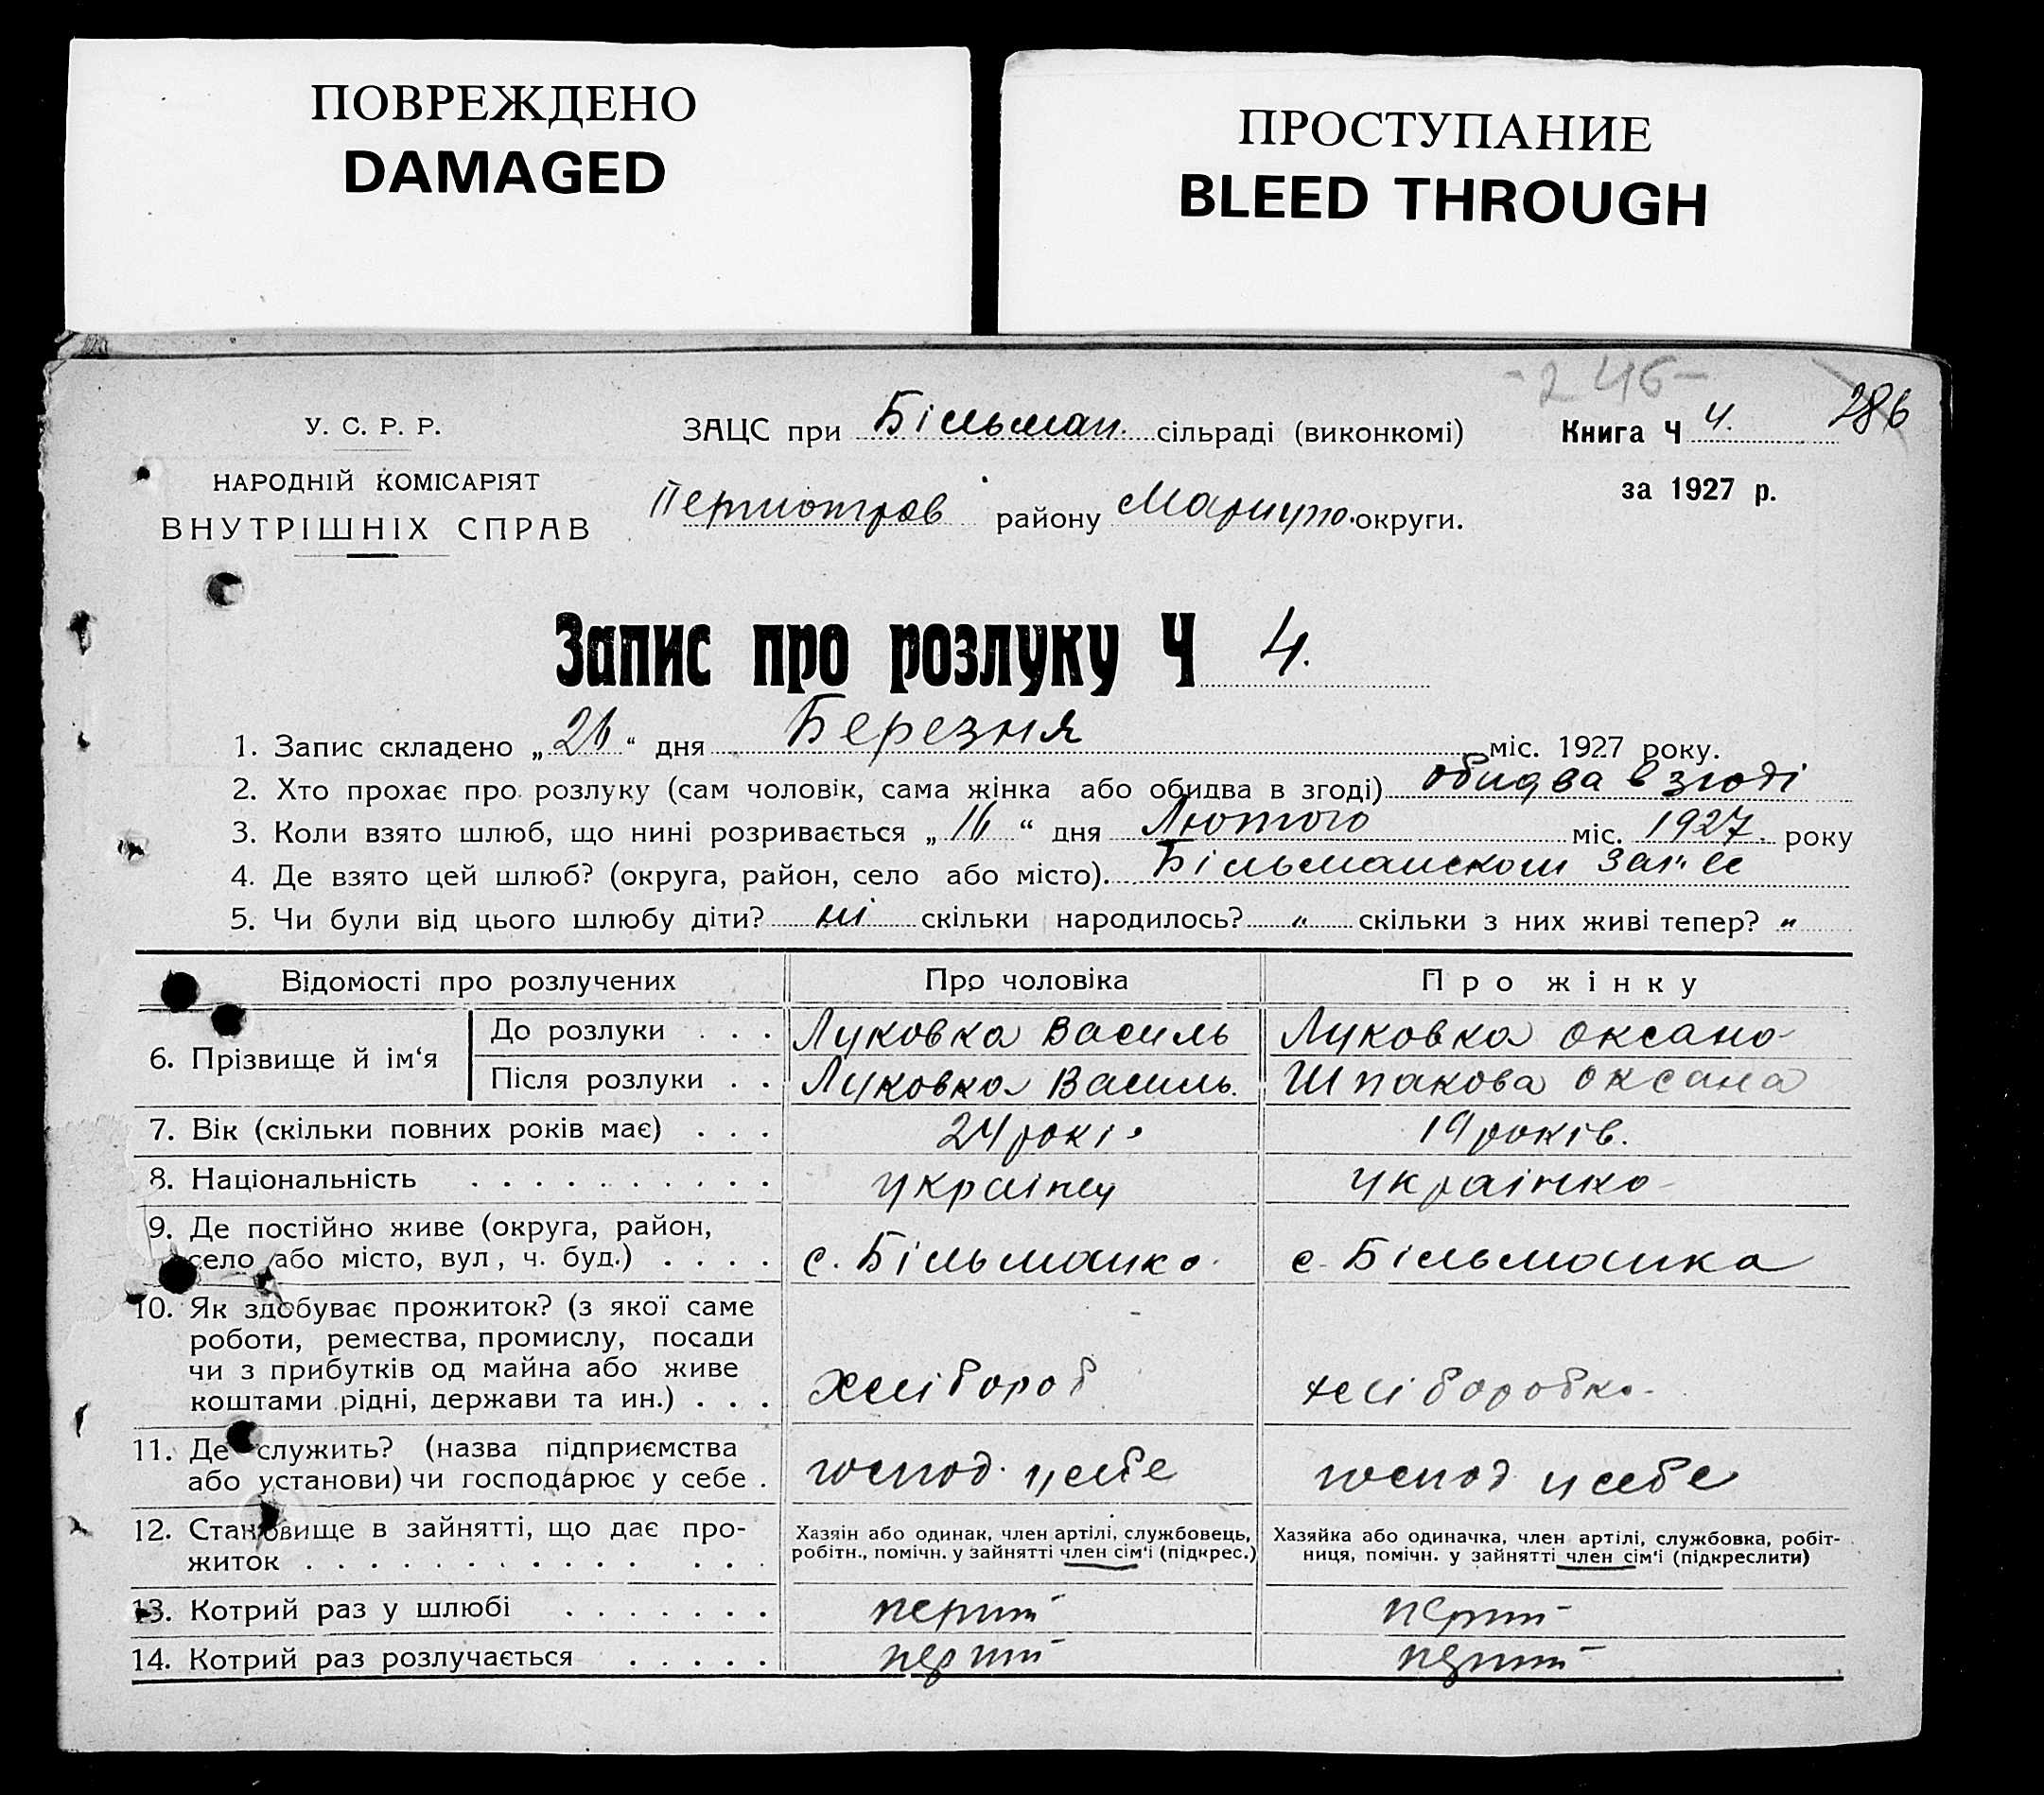 ПОВРЕЖДЕНО
DAMAGED
ПРОСТУПАНИЕ
BLEED THROUGH
- 246 -
286
У. С. Р. Р.
НАРОДНІЙ КОМІСАРІЯТ
ВНУТРІШНІХ СПРАВ
ЗАЦС при Більман. сільраді (виконкомі)
району Маріупо. округи.
Книга Ч 4.
за 1927 р.
Запис про розлуку Ч 4.
1. Запис складено „26“ дня Березня міс. 1927 року.
2. Хто прохає про розлуку (сам чоловік, сама жінка або обидва в згоді) обидва в згоді
3. Коли взято шлюб, що нині розривається „16“ дня Лютого міс. 1927. року
4. Де взято цей шлюб? (округа, район, село або місто). Більманском
5. Чи були від цього шлюбу діти? ні скільки народилось? „ скільки з них живі тепер? „
Відомості про розлучених Про чоловіка Про жінку
6. Прізвище й ім‘я
До розлуки . . . Луковка Василь Луковка Оксана
Після розлуки . . Луковка Василь. Шпакова Оксана
7. Вік (скільки повних років має) . . . 24 років 19 років.
8. Національність . . . . . . . . . . українец українка
9. Де постійно живе (округа, район,
село або місто, вул, ч. буд.) . . . . с. Більманка с. Більманка
10. Як здобуває прожиток? (з якої саме
роботи, ремества, промислу, посади
чи з прибутків од майна або живе
коштами рідні, держави та ин.) . . . хлібороб хліборобка
11. Де служить? (назва підприємства
або установи) чи господарює у себе . господ. у себе господ у себе
12. Становище в зайнятті, що дає про-
житок . . . . . . . . . . . . . .
Хазяін або одинак, член артілі, службовець,
робітн., помічн. у зайнятті член сім‘ї (підкрес.)
Хазяйка або одиначка, член артілі, службовка, робіт-
ниця, помічн. у зайнятті член сім‘ї (підкреслити)
13. Котрий раз у шлюбі . . . . . . . перший перший
14. Котрий раз розлучається . . . . . перший перший